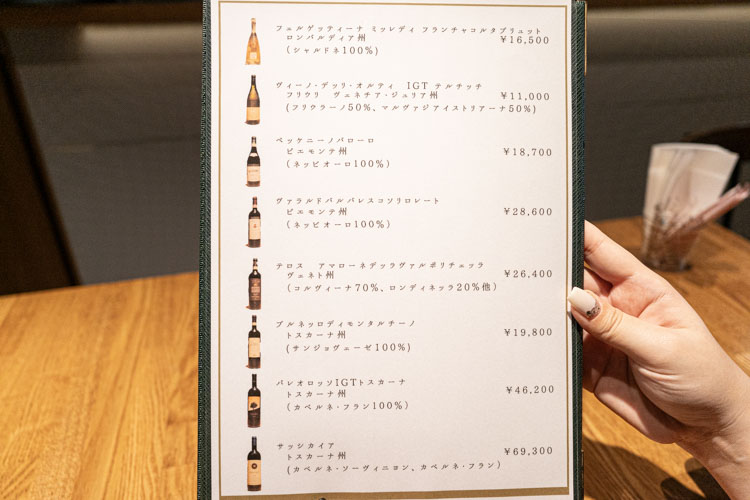 フェルゲッティーナ ミッレディ フランチャコルタブリュット
ロンバルディア州 ¥16,500
(シャルドネ100%)
ヴィーノ・デッリ・オルティ IGT テルチッチ
フリウリ ヴェネチア・ジュリア州 ¥11,000
(フリウラーノ50%、マルヴァジアイストリアーナ50%)
ペッケニーノバローロ
ピエモンテ州 ¥18,700
(ネッビオーロ100%)
ヴァラルドバルバレスコソリロレート
ピエモンテ州 ¥28,600
(ネッビオーロ100%)
テロス アマローネデッラヴァルポリチェッラ
ヴェネト州 ¥26,400
(コルヴィーナ70%、ロンディネッラ20%他)
ブルネッロディモンタルチーノ
トスカーナ州 ¥19,800
(サンジョヴェーゼ100%)
パレオロッソIGTトスカーナ
トスカーナ州 ¥46,200
(カベルネ・フラン100%)
サッシカイア
トスカーナ州 ¥69,300
(カベルネ・ソーヴィニヨン、カベルネ・フラン)